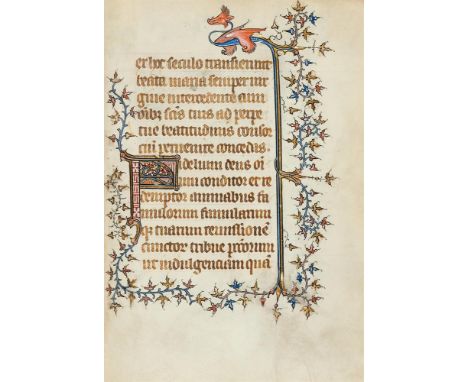 et hoc seculo transierunt
beata maria semper vir
gine intercedente cum
oibz scis tuis ad perpe
tue beatitudinis consor
cium pervenire concedas.
Fidelium deus oi
um conditor et re
demptor animabus fa
mulorum famularum
qz tuarum remissione
cunctor tribue pctorum
ut indulgenciam qua